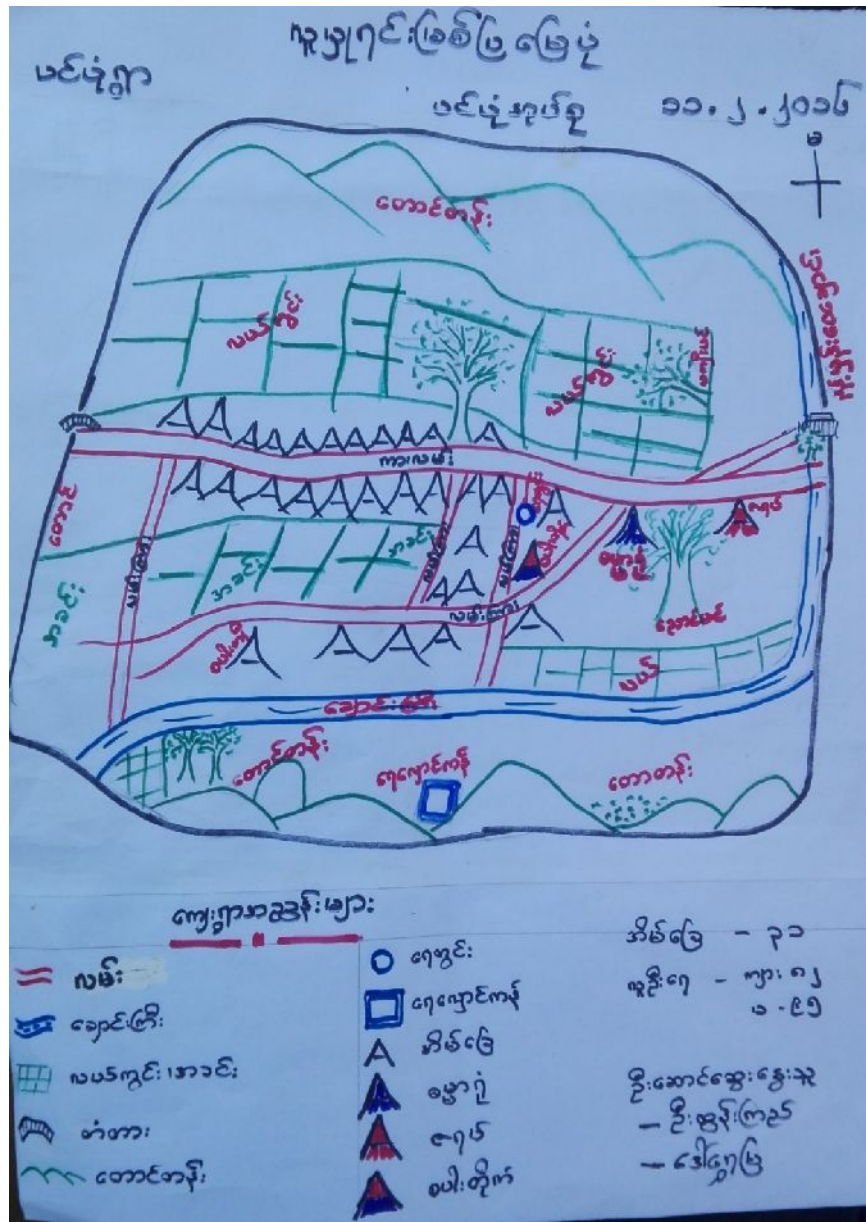 လူမှုရင်းမြစ်ပြမြေပုံ
ပင်ပုံရွာ
ပင်ပုံအုပ်စု
၁၁.၂.၂၀၁၆
တောင်တန်း
လယ်ကွင်း
လယ်ကွင်း
ကားလမ်း
တောင်
အခင်း
လမ်းကြား
အခင်း
အခင်း
လမ်းကြား
လမ်းကြား
လမ်းကြား
ဓမ္မာရုံ
ဇရပ်
ညောင်ပင်
လယ်
ချောင်းကြီး
တောင်တန်း
ရေလှောင်ကန်
တောတန်း
ကျေးရွာအညွှန်းများ
လမ်း
ချောင်းကြီး
လယ်ကွင်း၊အခင်း
တံတား
တောင်တန်း
ရေတွင်း
ရေလှောင်ကန်
အိမ်ခြေ
ဓမ္မာရုံ
ဇရပ်
စပါးတိုက်
အိမ်ခြေ - ၃၁
လူဦးရေ - ကျား ၈၂
မ - ၉၅
ဦးဆောင်ဆွေးနွေးသူ
- ဦးထွန်းကြည်
- ဒေါ်ရွှေမြ